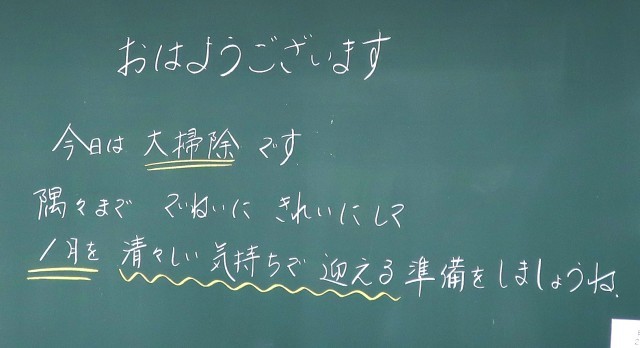 おはようございます
今日は 大掃除 です
隅々まで ていねいに きれいにして
1月を 清々しい 気持ちで 迎える 準備をしましょうね.